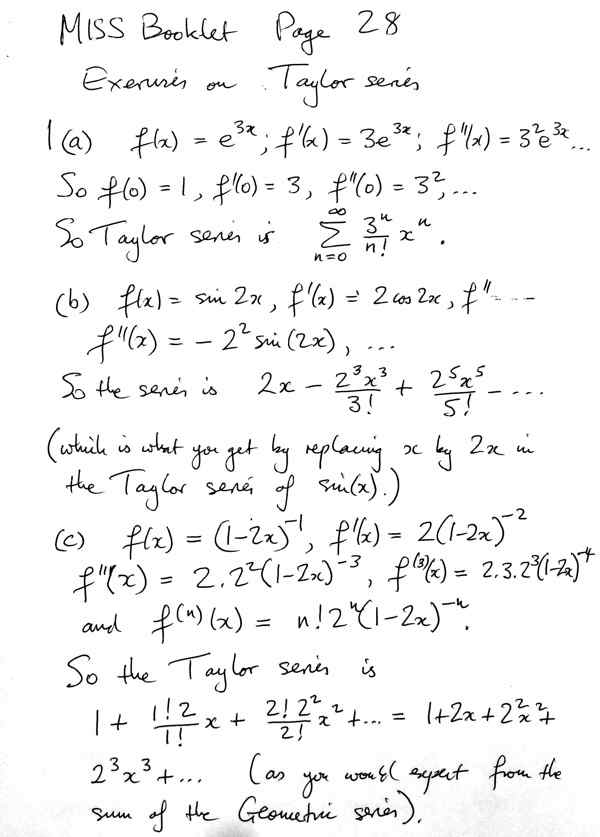 MISS Booklet Page 28
Exercises on Taylor series
1(a) f(x) = e^{3x}; f'(x) = 3e^{3x}; f''(x) = 3^2e^{3x}...
So f(0) = 1, f'(0) = 3, f''(0) = 3^2,...
So Taylor series is \sum_{n=0}^{∞} \frac{3^n}{n!} x^n.
(b) f(x) = sin 2x, f'(x) = 2 cos 2x, f''....
f''(x) = - 2^2 sin(2x), ...
So the series is 2x - \frac{2^3x^3}{3!} + \frac{2^5x^5}{5!} - ...
(which is what you get by replacing x by 2x in
the Taylor series of sin(x).)
(c) f(x) = (1-2x)^{-1}, f'(x) = 2(1-2x)^{-2}
f''(x) = 2.2^2(1-2x)^{-3}, f^{(3)}(x) = 2.3.2^3(1-2x)^{-4}
and f^{(n)}(x) = n!2^n(1-2x)^{-n}.
So the Taylor series is
1 + \frac{1!2}{1!}x + \frac{2!2^2}{2!}x^2 + ... = 1+2x+2^2x^2+
2^3x^3 + ... (as you would expect from the
sum of the Geometric series).